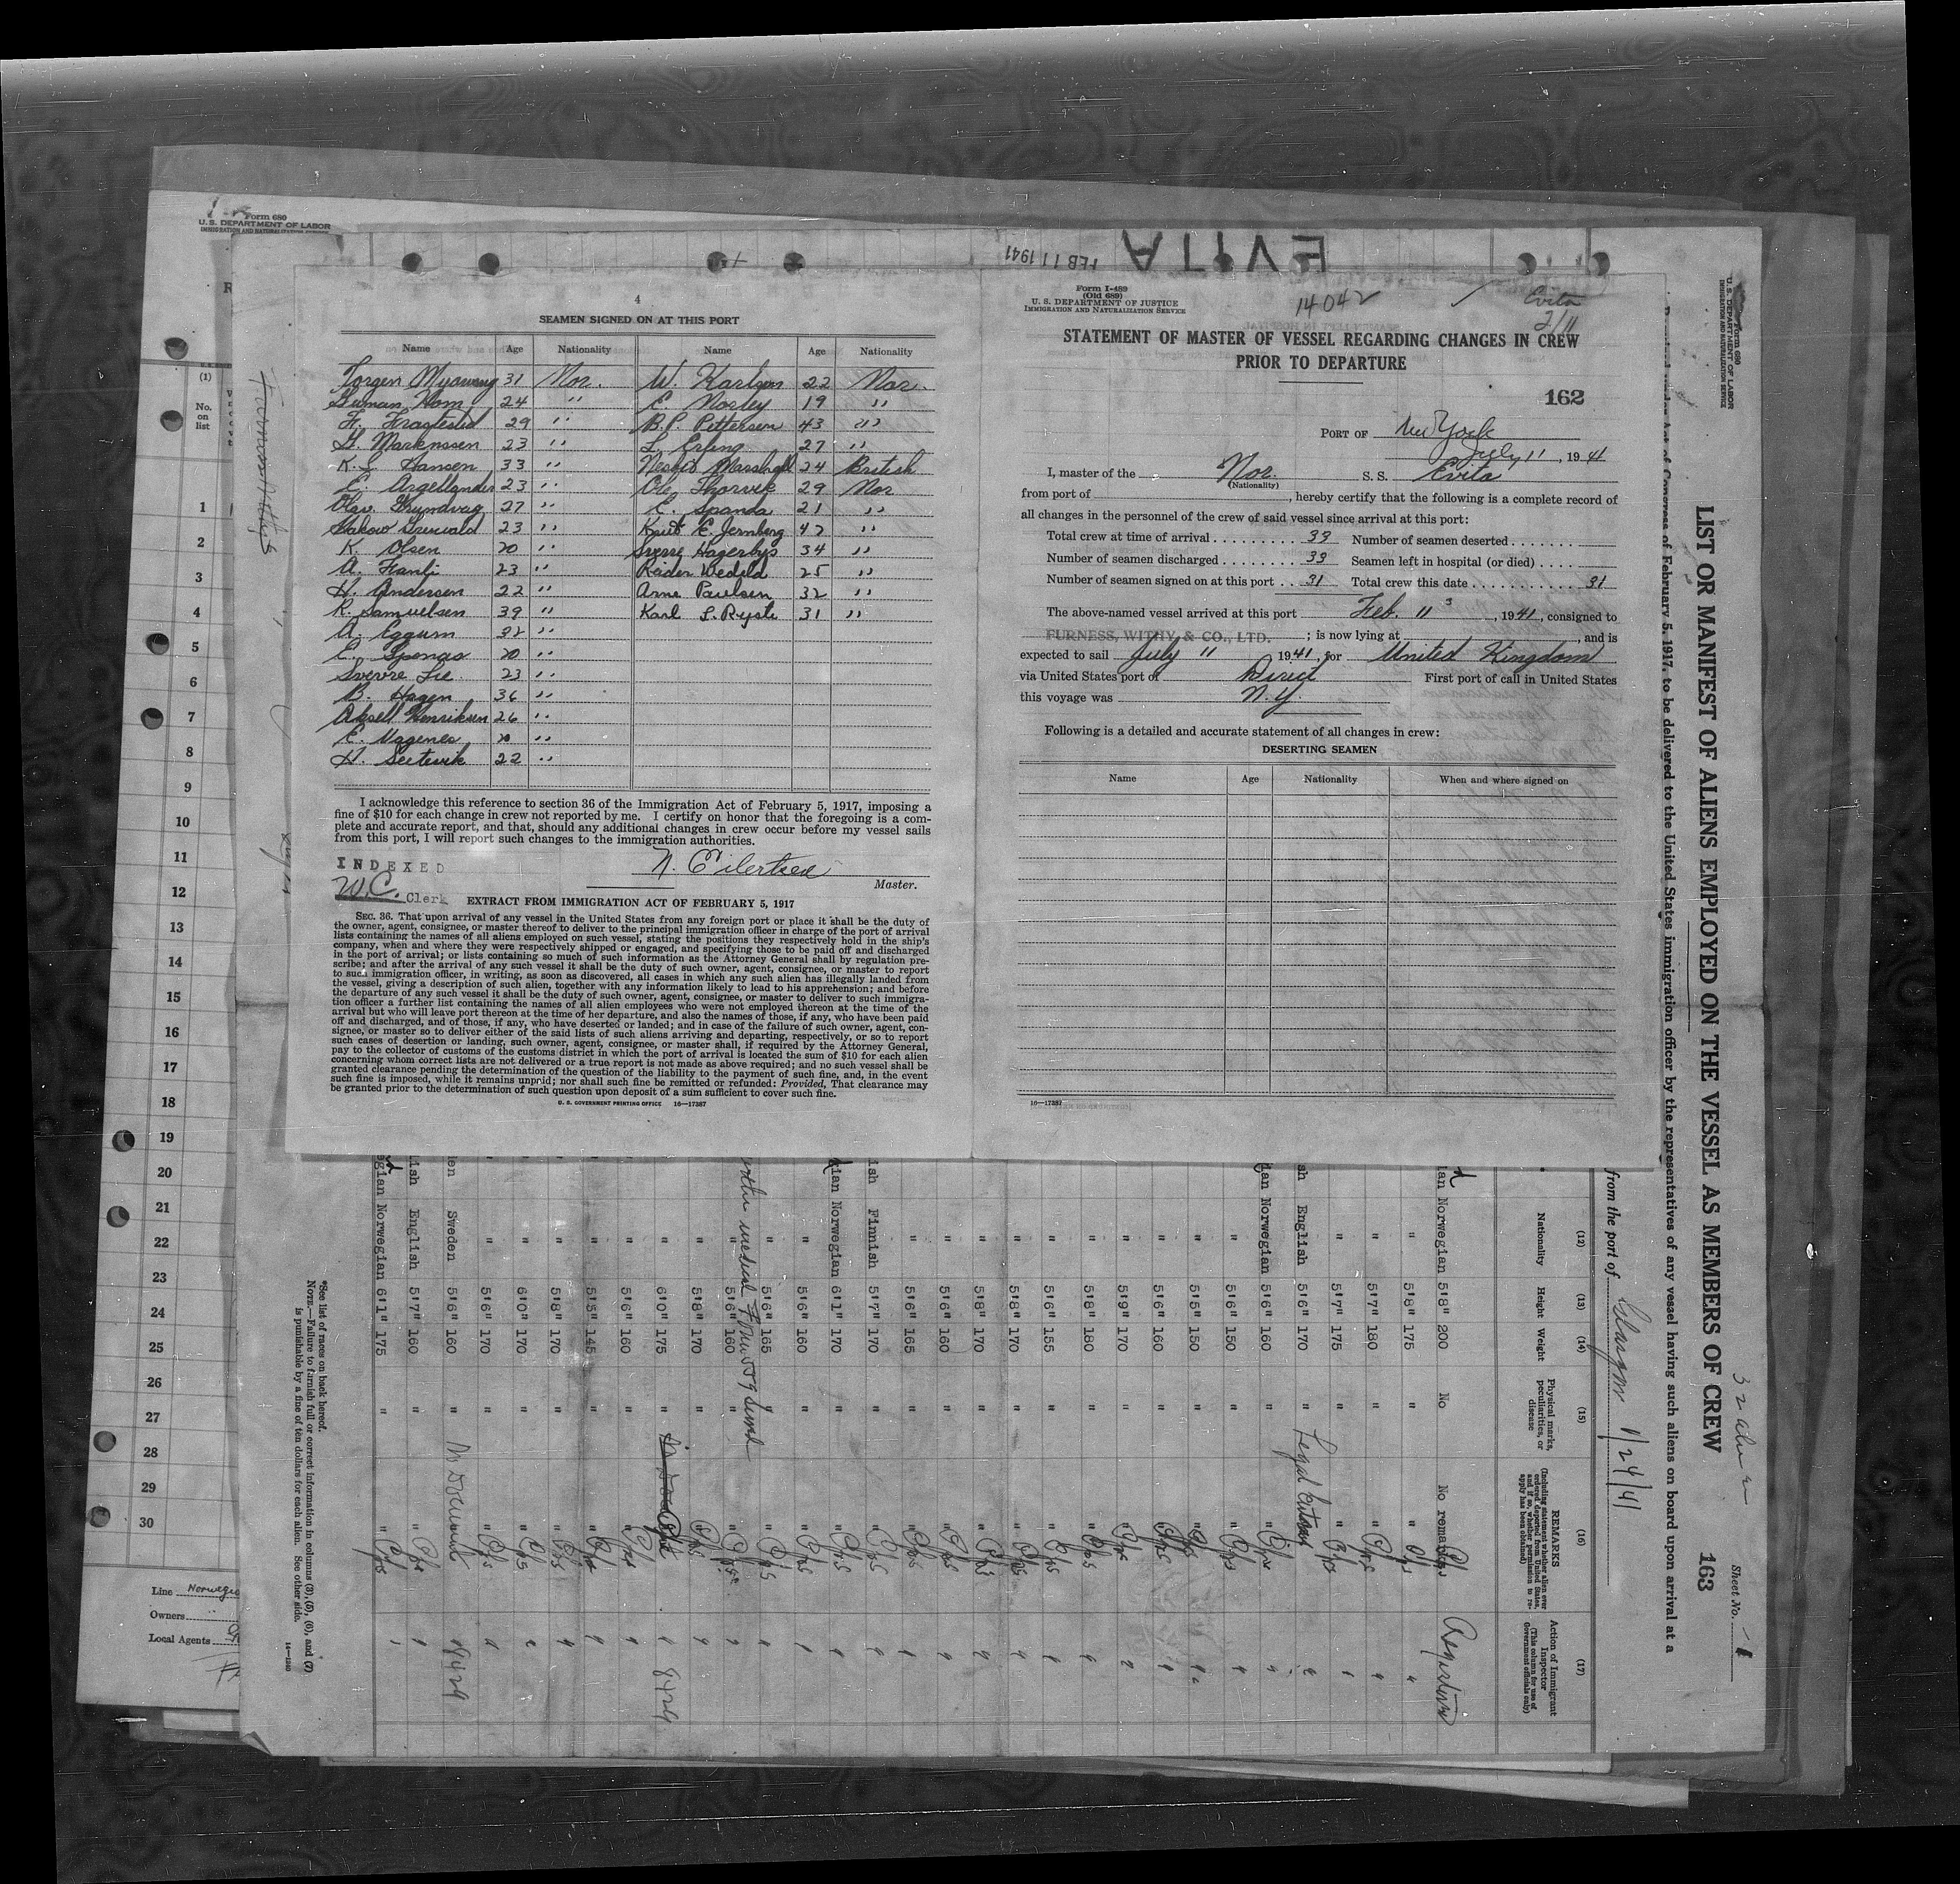 Form 680
U. S. DEPARTMENT OF LABOR
IMMIGRATION AND NATURALIZATION SERVICE
EVITA
FEB 11 1941
4
SEAMEN SIGNED ON AT THIS PORT
Name Age Nationality Name Age Nationality
Torgen 31 Nor. W. Karlsen 22 Nor.
24 " E. Norley 19 "
F. 29 " B.P. Pettersen 43 "
H. 23 " L. Erling 27 "
K. Hansen 33 " Marshall 24 British
E. 23 " Ole Thorvik 29 Nor
Olav Grundvag 27 " E. Spanda 21 "
23 " Knut E. Jernberg 42 "
K. Olsen 20 " Sverre Hagerbys 34 "
A. Hanli 23 " Reider Wedeld 25 "
H. Andersen 22 " Arne Paulsen 32 "
R. Samuelsen 39 " Karl L. Ryste 31 "
A. Eggum 32 "
E. 20 "
Sverre Lie 23 "
B. Hagen 36 "
Aksell Henriksen 26 "
E. Vagenes 20 "
H. 22 "
I acknowledge this reference to section 36 of the Immigration Act of February 5, 1917, imposing a
fine of $10 for each change in crew not reported by me. I certify on honor that the foregoing is a com-
plete and accurate report, and that, should any additional changes in crew occur before my vessel sails
from this port, I will report such changes to the immigration authorities.
INDEXED
N. Eilertsen
Master.
W.C. Clerk
EXTRACT FROM IMMIGRATION ACT OF FEBRUARY 5, 1917
SEC. 36. That upon arrival of any vessel in the United States from any foreign port or place it shall be the duty of
the owner, agent, consignee, or master thereof to deliver to the principal immigration officer in charge of the port of arrival
lists containing the names of all aliens employed on such vessel, stating the positions they respectively hold in the ship's
company, when and where they were respectively shipped or engaged, and specifying those to be paid off and discharged
in the port of arrival; or lists containing so much of such information as the Attorney General shall by regulation pre-
scribe; and after the arrival of any such vessel it shall be the duty of such owner, agent, consignee, or master to report
to such immigration officer, in writing, as soon as discovered, all cases in which any such alien has illegally landed from
the vessel, giving a description of such alien, together with any information likely to lead to his apprehension; and before
the departure of any such vessel it shall be the duty of such owner, agent, consignee, or master to deliver to such immigra-
tion officer a further list containing the names of all alien employees who were not employed thereon at the time of the
arrival but who will leave port thereon at the time of her departure, and also the names of those, if any, who have been paid
off and discharged, and of those, if any, who have deserted or landed; and in case of the failure of such owner, agent, con-
signee, or master so to deliver either of the said lists of such aliens arriving and departing, respectively, or so to report
such cases of desertion or landing, such owner, agent, consignee, or master shall, if required by the Attorney General,
pay to the collector of customs of the customs district in which the port of arrival is located the sum of $10 for each alien
concerning whom correct lists are not delivered or a true report is not made as above required; and no such vessel shall be
granted clearance pending the determination of the question of the liability to the payment of such fine, and, in the event
such fine is imposed, while it remains unpaid; nor shall such fine be remitted or refunded: Provided, That clearance may
be granted prior to the determination of such question upon deposit of a sum sufficient to cover such fine.
U. S. GOVERNMENT PRINTING OFFICE 16—17387
Form I-489
(Old 689)
U. S. DEPARTMENT OF JUSTICE
IMMIGRATION AND NATURALIZATION SERVICE
14042
Evita
2/11
STATEMENT OF MASTER OF VESSEL REGARDING CHANGES IN CREW
PRIOR TO DEPARTURE
162
PORT OF New York
July 11, 1941
I, master of the Nor. S. S. Evita
(Nationality)
from port of , hereby certify that the following is a complete record of
all changes in the personnel of the crew of said vessel since arrival at this port:
Total crew at time of arrival 33 Number of seamen deserted
Number of seamen discharged 33 Seamen left in hospital (or died)
Number of seamen signed on at this port 31 Total crew this date 31
The above-named vessel arrived at this port Feb. 11, 1941, consigned to
FURNESS, WITHY, & CO., LTD. ; is now lying at , and is
expected to sail July 11 1941, for United Kingdom
via United States port of Direct First port of call in United States
this voyage was N.Y.
Following is a detailed and accurate statement of all changes in crew:
DESERTING SEAMEN
Name Age Nationality When and where signed on
16—17387
Form 680
U. S. DEPARTMENT OF LABOR
IMMIGRATION AND NATURALIZATION SERVICE
Sheet No. 1
LIST OR MANIFEST OF ALIENS EMPLOYED ON THE VESSEL AS MEMBERS OF CREW 163
of Congress of February 5, 1917, to be delivered to the United States immigration officer by the representatives of any vessel having such aliens on board upon arrival at a
from the port of Glasgow 1/24/41
(12) (13) (14) (15) (16) (17)
Nationality Height Weight Physical marks, peculiarities, or disease REMARKS (Including statement whether alien ever ordered deported from United States, and if so, whether permission to re-apply has been obtained) Action of Immigrant Inspector (This column for use of Government officials only)
Norwegian 5'8" 200 No No remarks
" 5'8" 175 "
" 5'7" 180 "
" 5'7" 175 "
English 5'6" 170
Norwegian 5'6" 160 "
" 5'6" 150 "
" 5'5" 150 "
" 5'6" 160 "
" 5'9" 170 "
" 5'8" 180 "
" 5'6" 155 "
" 5'8" 170 "
" 5'8" 170 "
" 5'6" 160 "
" 5'6" 165 "
Finnish 5'7" 170 "
Norwegian 6'1" 170 "
" 5'6" 160 "
" 5'6" 165 "
" 5'6" 160 "
" 5'8" 170 "
" 6'0" 175 " 8429
" 5'6" 160 "
" 5'5" 145 "
" 5'8" 170 "
" 6'0" 170 "
" 5'6" 170 "
Sweden 5'6" 160 8429
English 5'7" 160 "
Norwegian 6'1" 175 "
*See list of races on back hereof.
NOTE.—Failure to furnish full or correct information in columns (3), (5), (6), and (7)
is punishable by a fine of ten dollars for each alien. See other side.
(1)
No. on list
1
2
3
4
5
6
7
8
9
10
11
12
13
14
15
16
17
18
19
20
21
22
23
24
25
26
27
28
29
30
Line
Owners
Local Agents